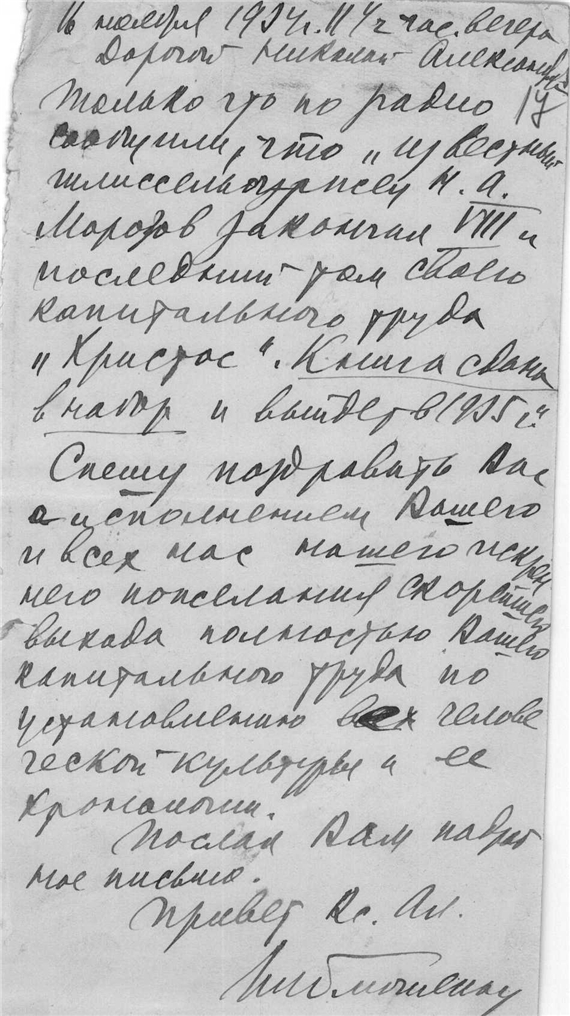 16 ноября 1934г. 11 1/2 час. вечера
Дорогой Николай Александр
17
Только что по радио
сообщили, что „известный
шлиссельбуржец Н. А.
Морозов закончил VIII и
последний том своего
капитального труда
„Христос“. Книга сдана
в набор и выйдет в 1935 г.“
Спешу поздравить Вас
с исполнением Вашего
и всех нас нашего искрен
него пожелания скорейшего
выхода полностью Вашего
капитального труда по
установлению челове
ческой культуры и ее
хронологии.
Послал Вам подроб
ное письмо.
Привет Кс. Ал.